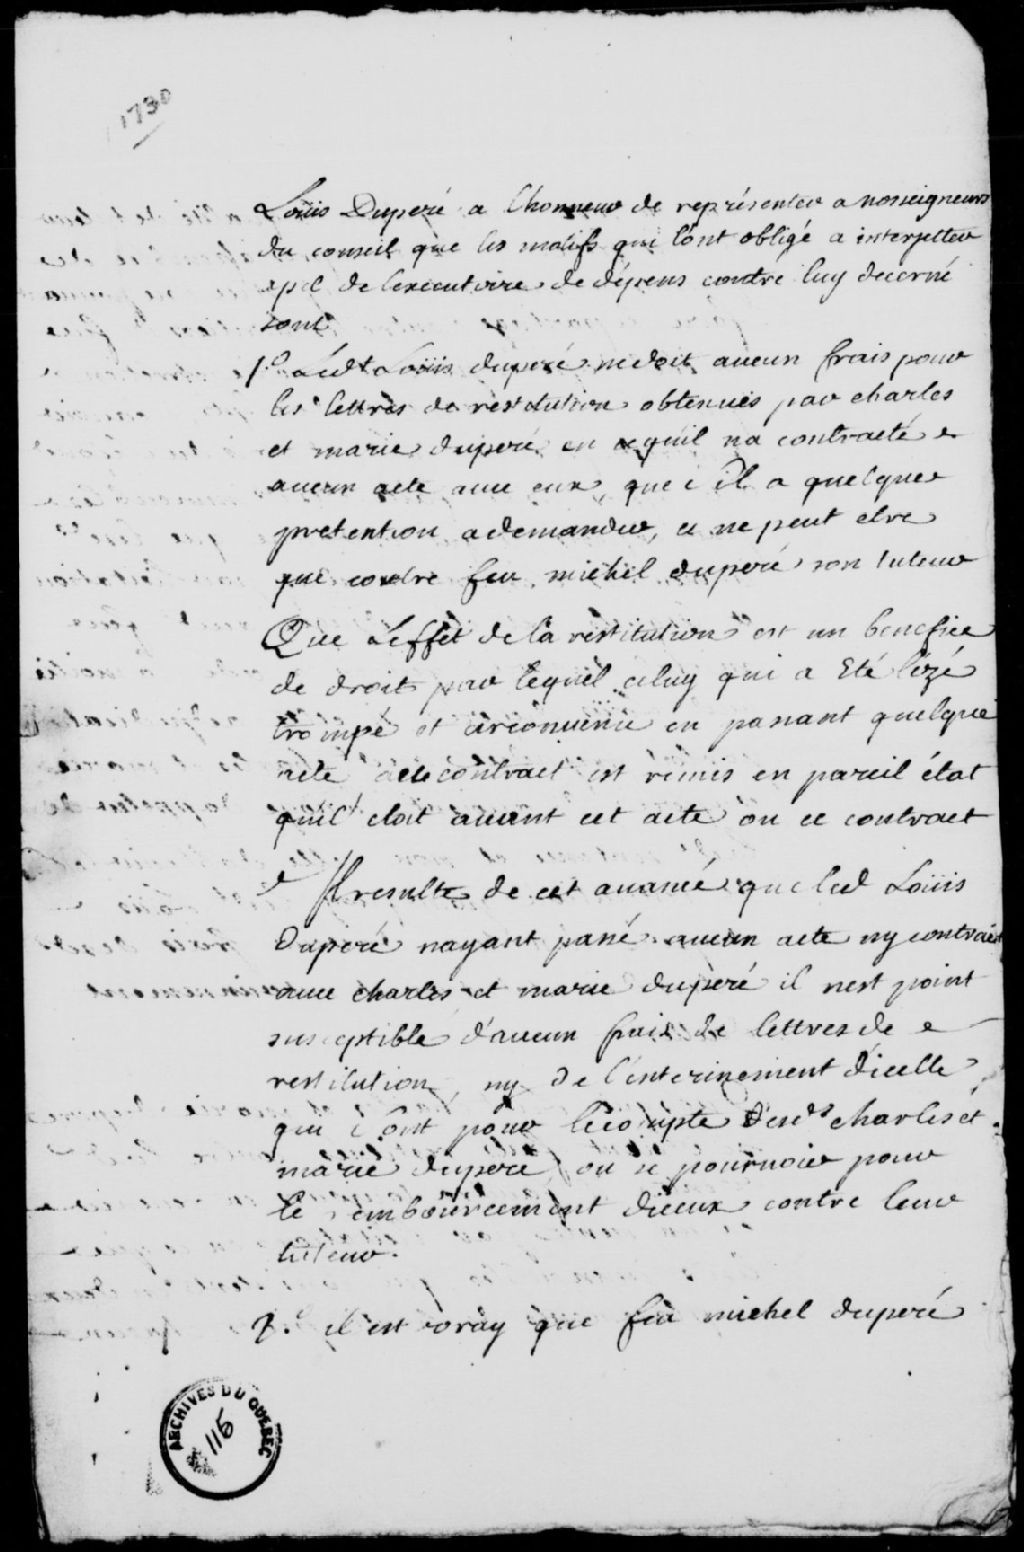 1730
Louis Duperé a lhonneur de représenter a nosseigneurs
du conseil que les motifs qui lont obligé a interjetter
apel de lexecutoire de dépens contre luy decerné
sont
1.° Led.t Loüis duperé ne doit aucun frais pour
les lettres de restitution obtenuës par charles
et marie duperé en ce quil na contracté
aucun acte avec eux, que s'il a quelque
pretention a demander, ce ne peut etre
que contre feu michel duperé son tuteur
Que Leffet de la restitution est un benefice
de droit par lequel celuy qui a Eté lézé
trompé et circonvenu en passant quelque
acte contract est remis en pareil état
quil etoit avant cet acte ou ce contract
Il resulte de cet avancé que led Loüis
Duperé nayant passé aucun acte ny contract
avec charles et marie duperé il nest point
susceptible d'aucun frais de lettres de
restitution ny de l'enterinement d'icelle
qui sont pour le compte desd.s charles et
marie duperé, ou se pourvoir pour
le rembourcement d'iceux contre leur
tuteur.
2.° il est vray que feu michel duperé
ARCHIVES DU QUEBEC
115